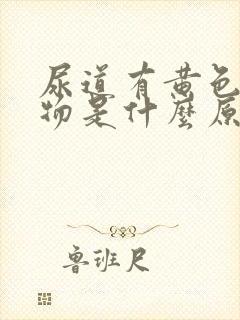 尿道有黄色
物是什麼原
鲁班尺